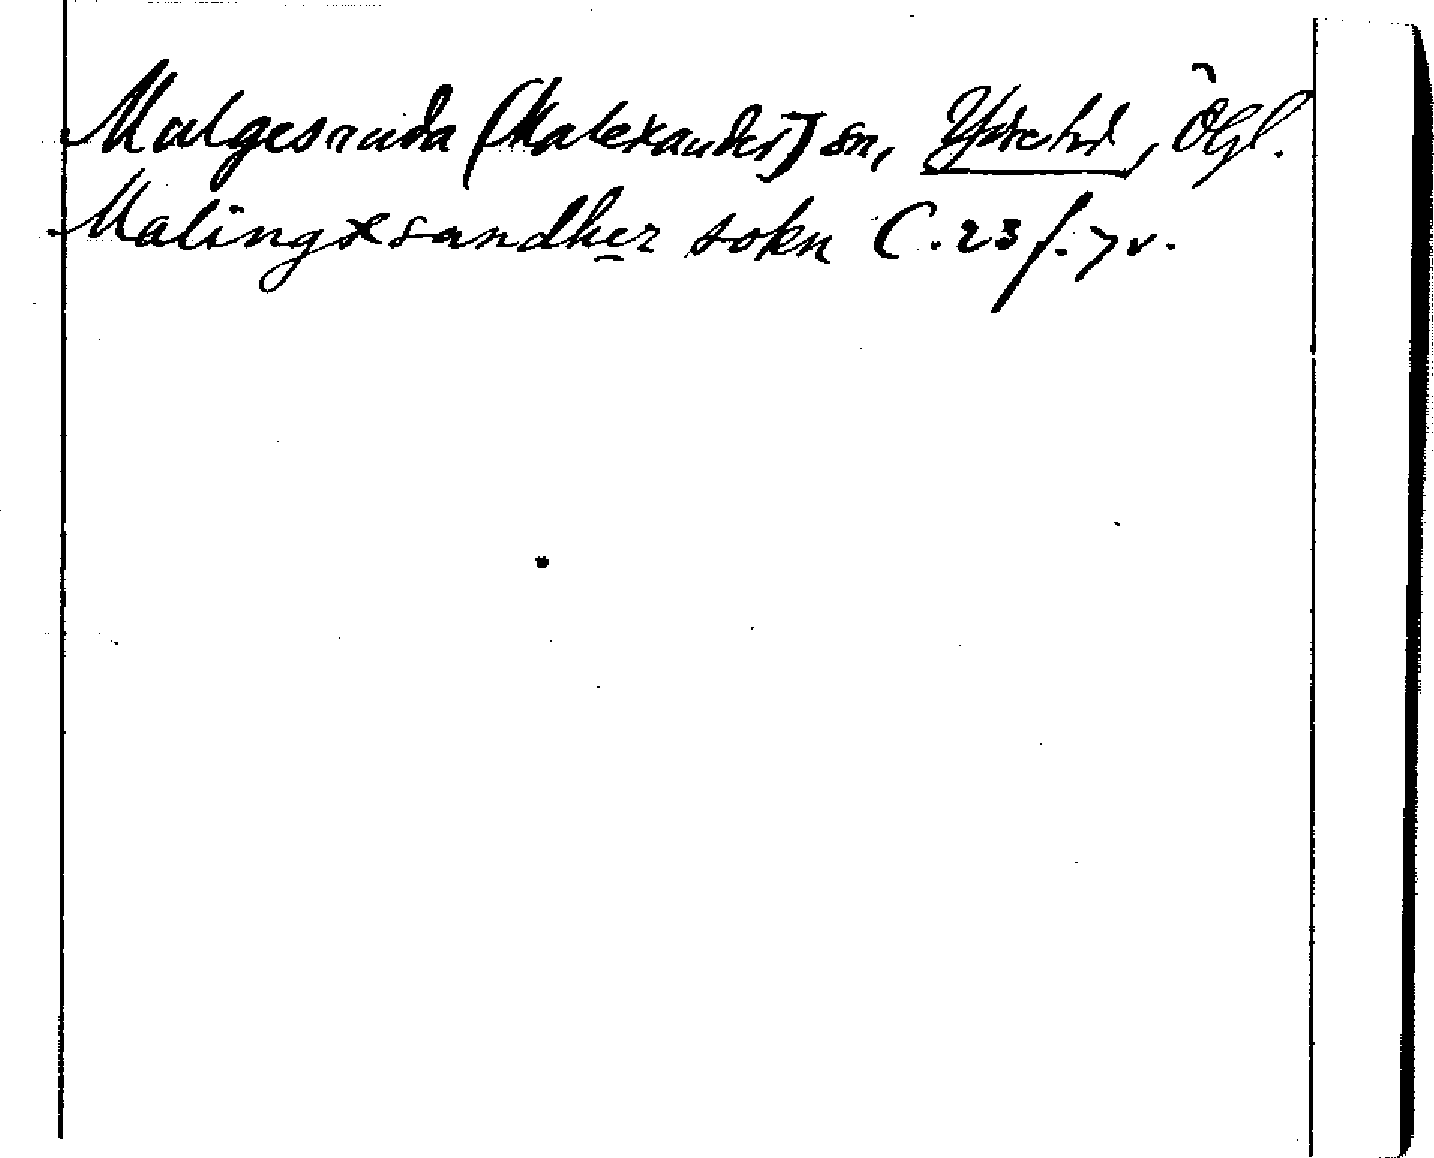 Malgesanda (Malexander) sn, Ydrehd, Ögl.
Malingxsandher sokn C. 23 f. 7 v.